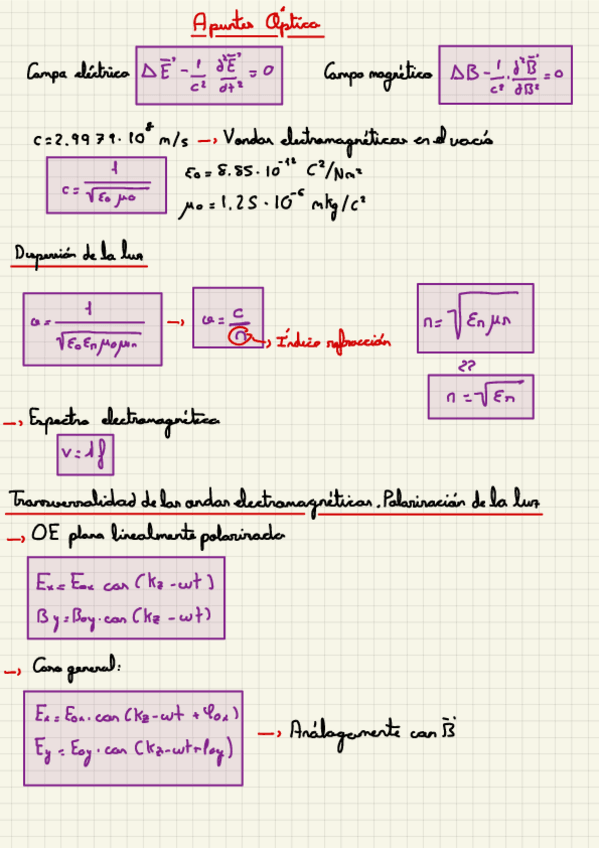 Apuntes Óptica
Campo eléctrico Δ E⃗ - 1/c² d²E⃗/dt² = 0 Campo magnético ΔB - 1/c² · d²B⃗/dB² = 0
c = 2.9979 · 10⁸ m/s → Vondas electromagnéticas en el vacío
c = 1/√(ε₀ μ₀) ε₀ = 8.85 · 10⁻¹² C²/Nm²
μ₀ = 1.25 · 10⁻⁶ mkg/C²
Dispersión de la luz
v = 1/√(ε₀ εᵣ μ₀ μᵣ) → v = c/n → Índice refracción n = √(εᵣ μᵣ)
n = √εᵣ
→ Espectro electromagnético
v = λf
Transversalidad de las ondas electromagnéticas. Polarización de la luz
→ OE plana linealmente polarizada
Eₓ = E₀ₓ cos (kz - ωt)
By = B₀y · cos (kz - ωt)
→ Caso general:
Eₓ = E₀ₓ · cos (kz - ωt + φ₀ₓ)
Ey = E₀y · cos (kz - ωt + φ₀y) → Análogamente con B⃗